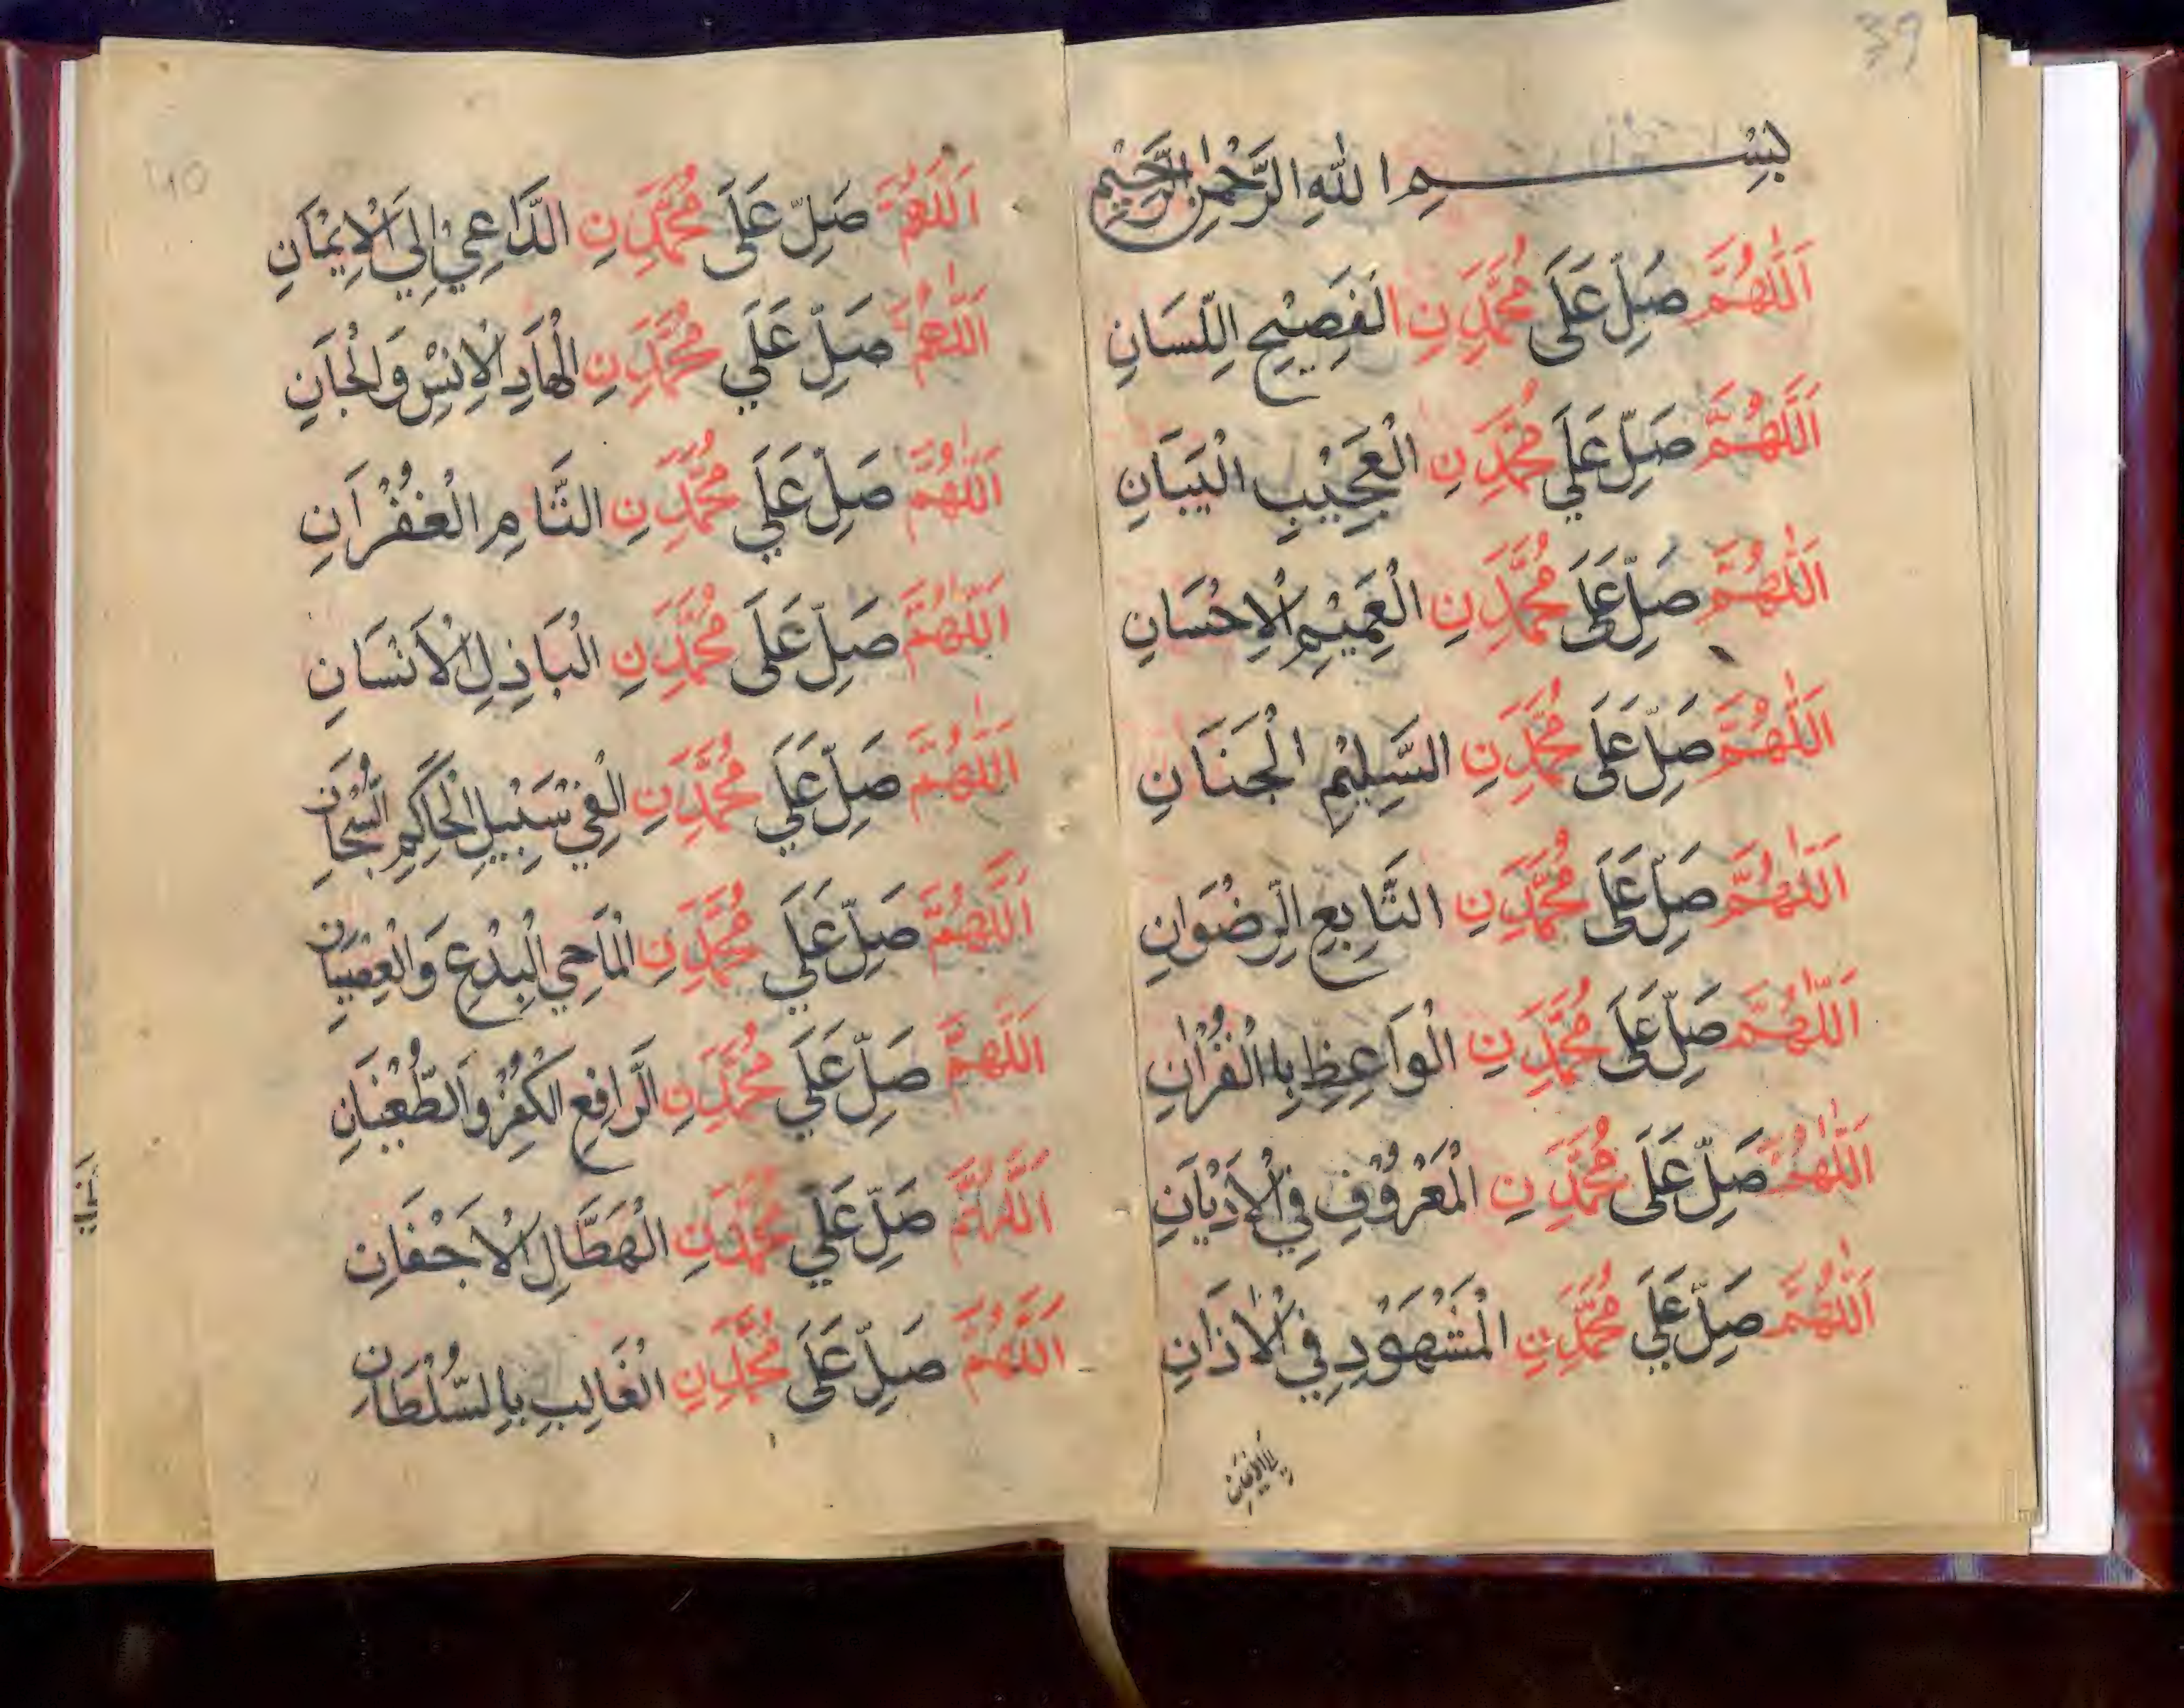 39
بِسْــــــمِ اللهِ الرَّحْمٰنِ الرَّحِيْمِ
اَللّٰهُمَّ صَلِّ عَلَى مُحَمَّدٍ نِ الفَصِيْحِ اللِّسَانِ
اَللّٰهُمَّ صَلِّ عَلَي مُحَمَّدٍ نِ الْعَجِيْبِ الْبَيَانِ
اَللّٰهُمَّ صَلِّ عَلَى مُحَمَّدٍ نِ الْعَمِيْمِ الْاِحْسَانِ
اَللّٰهُمَّ صَلِّ عَلَى مُحَمَّدٍ نِ السَّلِيْمِ الْجَنَانِ
اَللّٰهُمَّ صَلِّ عَلَى مُحَمَّدٍ نِ التَّابِعِ الرِّضْوَانِ
اَللّٰهُمَّ صَلِّ عَلَى مُحَمَّدٍ نِ الْوَاعِظِ بِاالْقُرْاٰنِ
اَللّٰهُمَّ صَلِّ عَلَى مُحَمَّدٍ نِ الْمَعْرُوْفِ فِي الْاَدْيَانِ
اَللّٰهُمَّ صَلِّ عَلَي مُحَمَّدٍ نِ الْمَشْهُوْدِ فِي الْاٰذَانِ
40
اَللّٰهُمَّ صَلِّ عَلَى مُحَمَّدٍ نِ الدَّاعِيْ اِلَي الْاِيْمَانِ
اَللّٰهُمَّ صَلِّ عَلَي مُحَمَّدٍ نِ الْهَادِ الْاِنْسِ وَالْجَانِ
اَللّٰهُمَّ صَلِّ عَلَي مُحَمَّدٍ نِ التَّامِ الْغُفْرَانِ
اَللّٰهُمَّ صَلِّ عَلَى مُحَمَّدٍ نِ الْبَاذِلِ الْاَنْسَانِ
اَللّٰهُمَّ صَلِّ عَلَي مُحَمَّدٍ نِ الْفِيْ سَبِيْلِ الْحَاكِمِ السُّبْحَانِ
اَللّٰهُمَّ صَلِّ عَلَي مُحَمَّدٍ نِ الْمَاحِي الْبِدْعِ وَالْعِصْيَانِ
اَللّٰهُمَّ صَلِّ عَلَي مُحَمَّدٍ نِ الرَّافِعِ الكُفْرِ وَالطُّغْيَانِ
اَللّٰهُمَّ صَلِّ عَلَي مُحَمَّدٍ نِ الْهَطَّالِ الْاَجْفَانِ
اَللّٰهُمَّ صَلِّ عَلَى مُحَمَّدٍ نِ الْغَالِبِ بِالسُّلْطَانِ